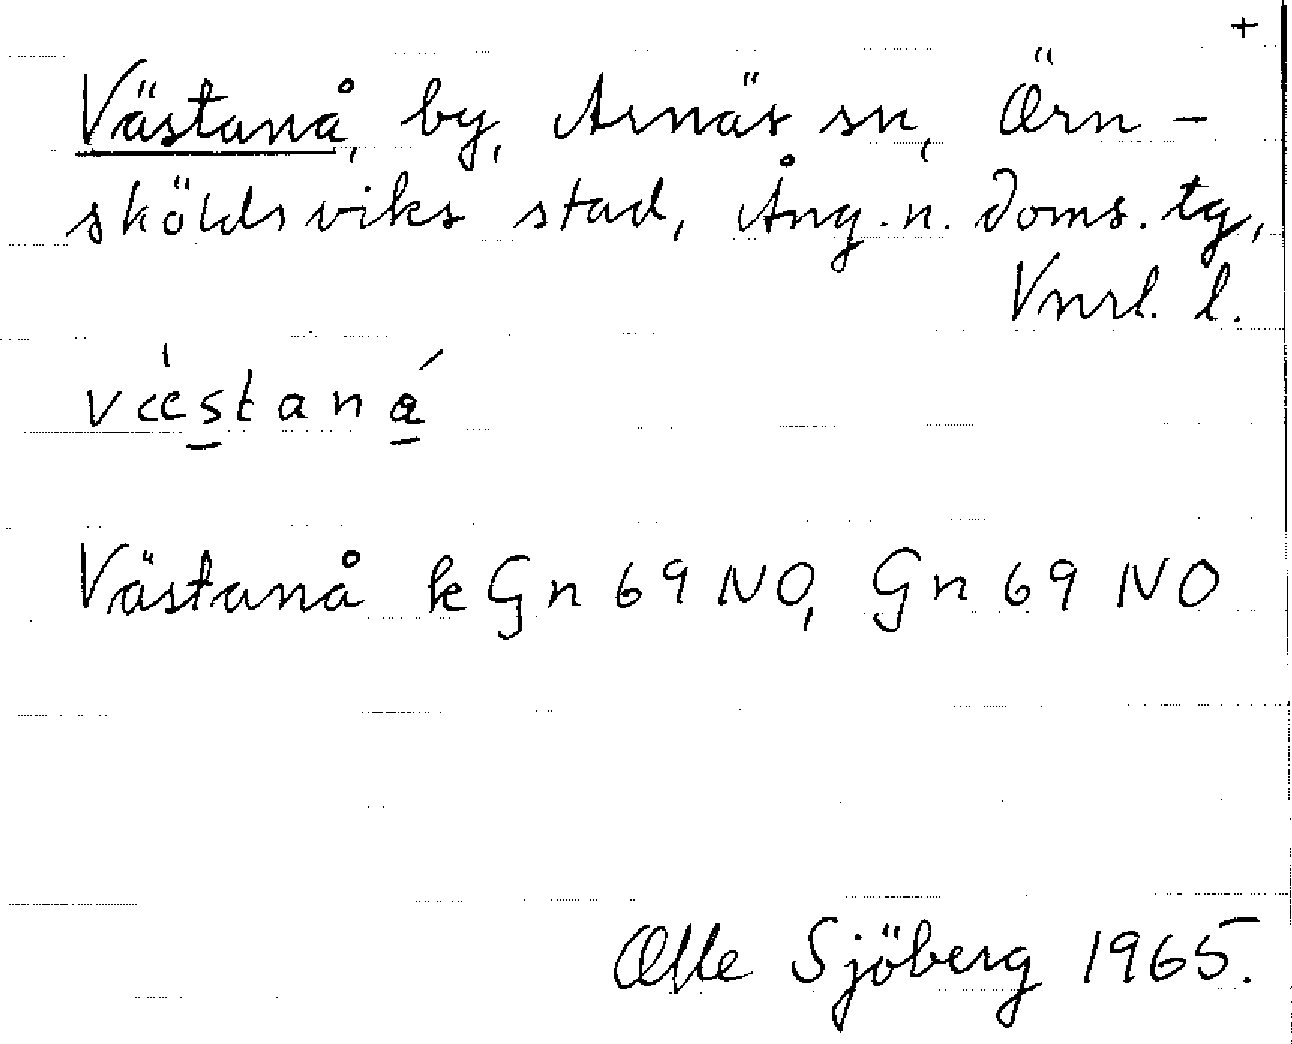 +
Västanå, by, Arnäs sn, Örn-
sköldsviks stad, Ång. n. doms. tg,
Vnrl. l.
væ̍s̲taná̲
Västanå k Gn 69 NO, Gn 69 NO
Olle Sjöberg 1965.